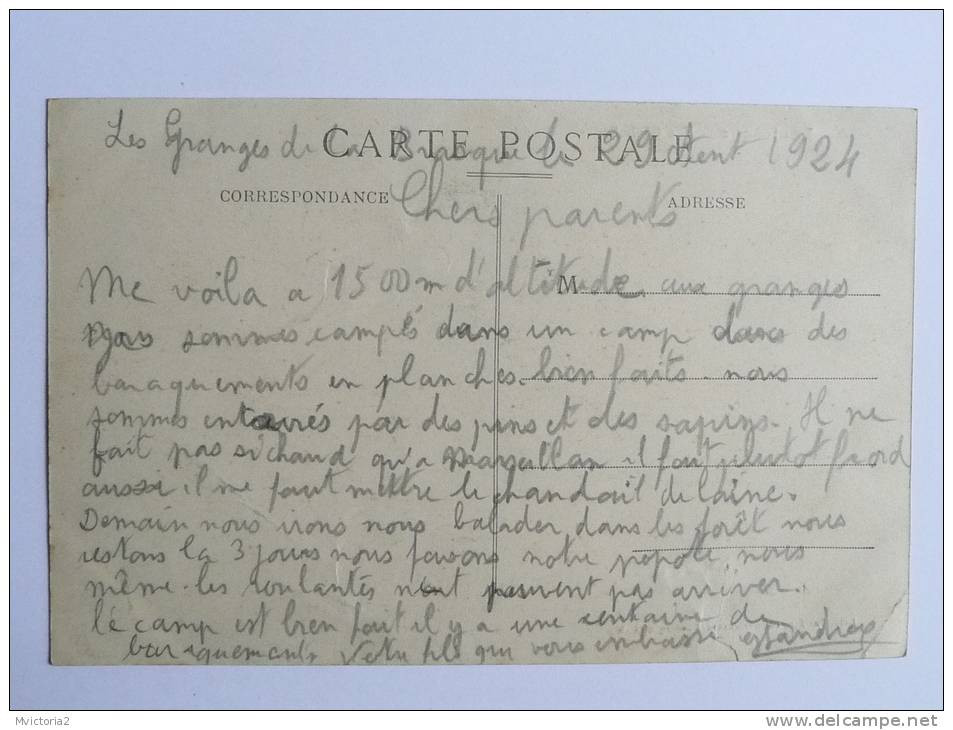 Les Granges de la Brasque le 29 1924
CARTE POSTALE
CORRESPONDANCE
ADRESSE
Chers parents
M
Me voila a 1500m d'altitude aux granges
nous sommes campés dans un camp dans des
baraquements en planches. bien faits. nous
sommes entourés par des pins et des sapins. Il ne
fait pas si chaud qu'a Marseillan il fait plutot froid
aussi il me faut mettre le chandail de laine.
Demain nous irons nous balader dans les forêt nous
restons la 3 jours nous faisons notre popote nous
même. les roulantes peuvent pas arriver.
le camp est bien fait il y a une centaine de
baraquements Votre fils qui vous embrasse
Mvictoria2
www.delcampe.net